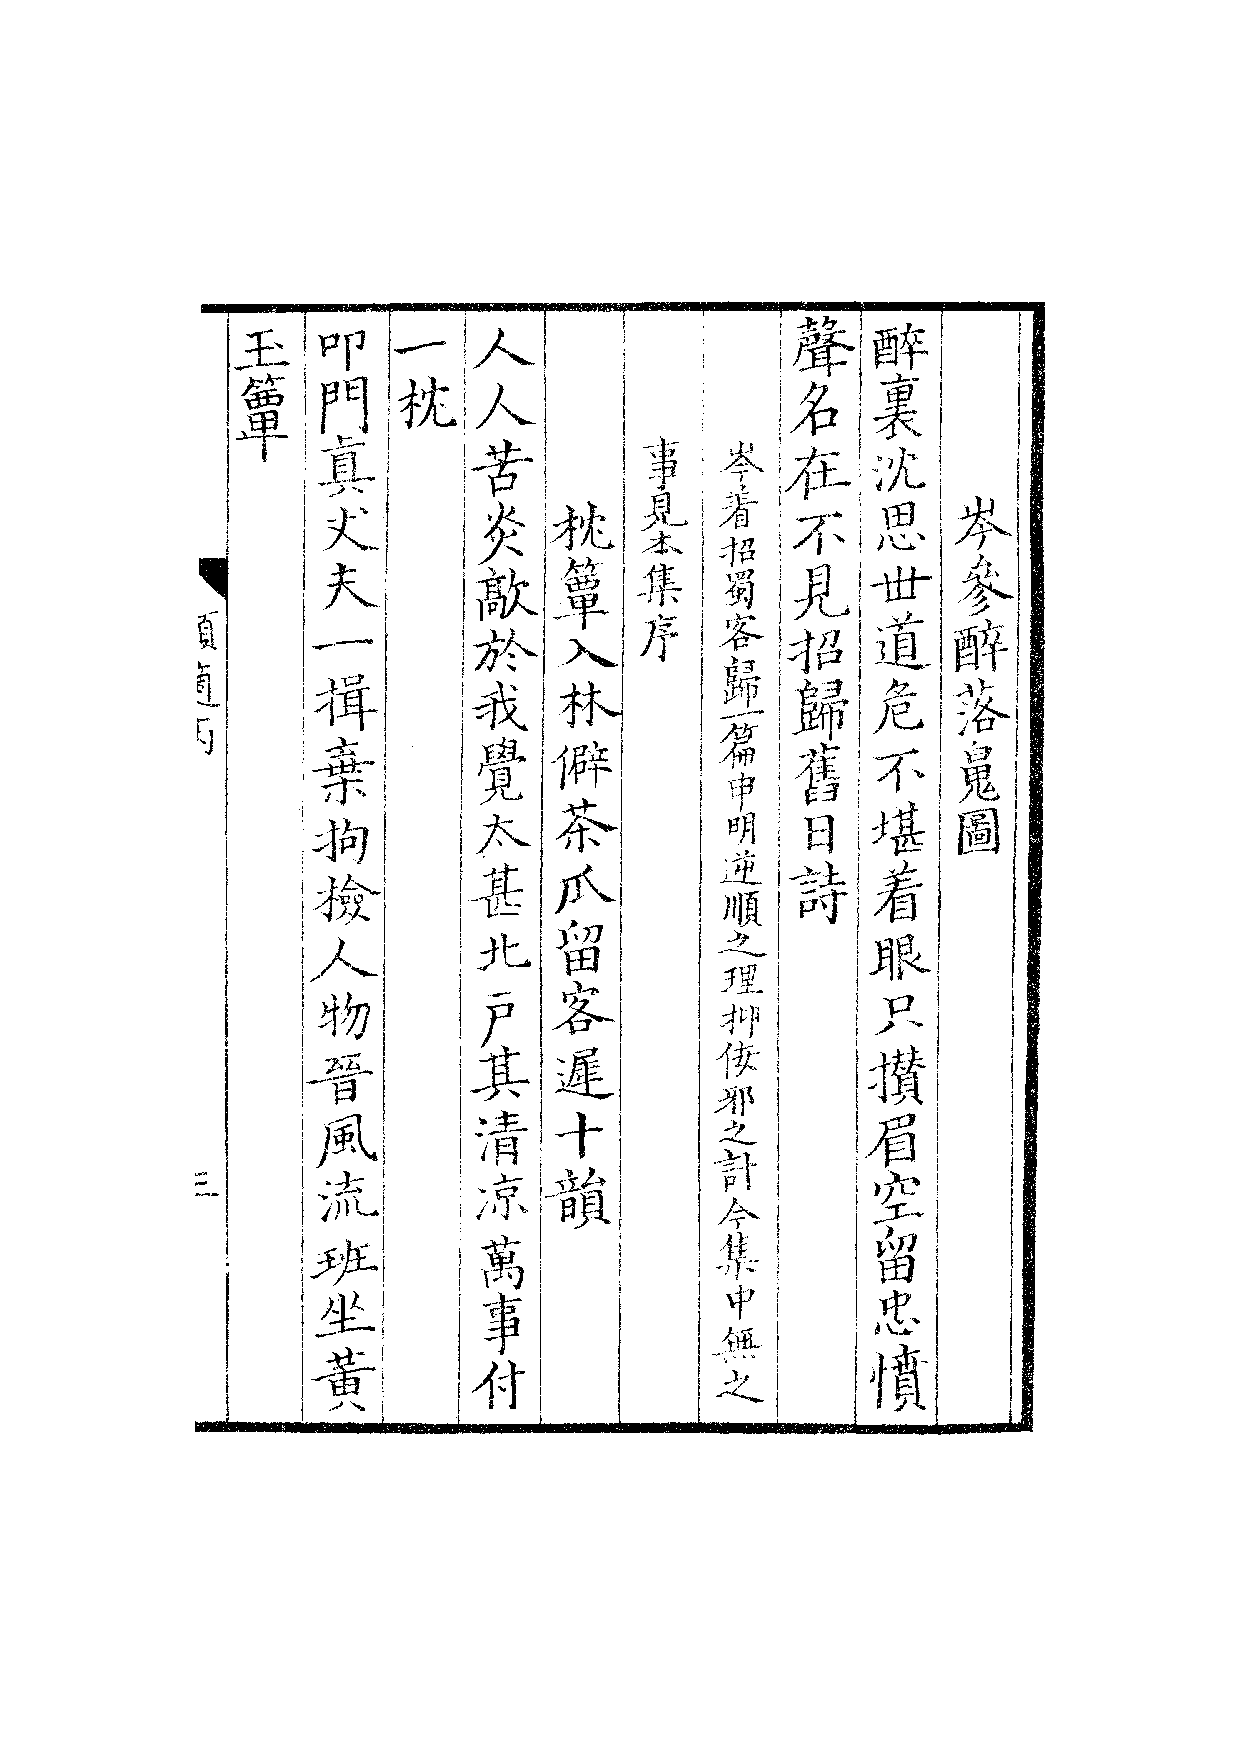 岑參醉落䰟圖
醉裏沈思世道危不堪着眼只攢眉空留忠憤
聲名在不見招歸舊日詩
岑着招蜀客歸一篇申明逆順之理抑佞邪之計今集中無之
事見本集序
枕簟入林僻茶瓜留客遲十韻
人人苦炎敲於我覺太甚北戶其清凉萬事付
一枕
叩門真丈夫一揖棄拘檢人物晉風流班坐黃
玉簟
頤適丙
三